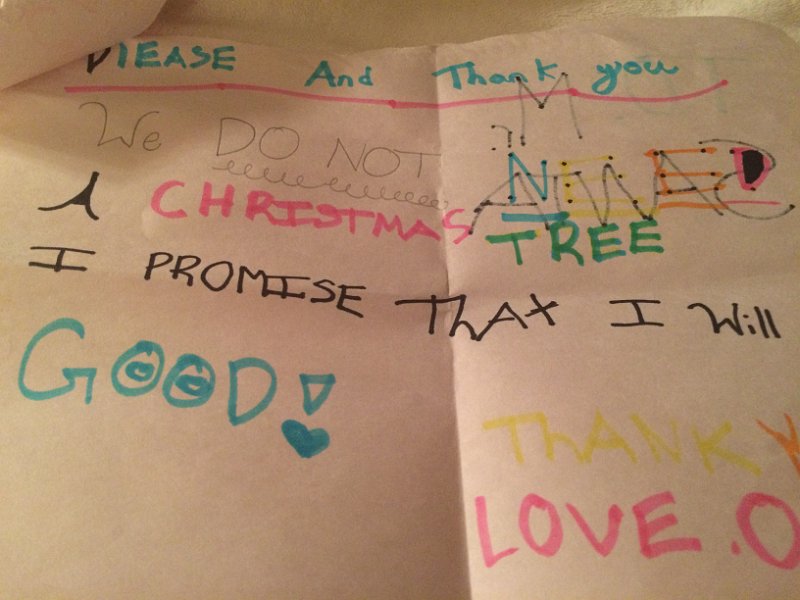 PlEASE And Thank you
We DO NOT NEED
A CHRISTMAS TREE
I PROMISE ThAT I Will
GOOD!
ThANK Y
LOVE.O